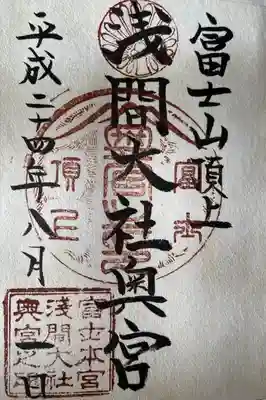 富士山頂上
浅間大社奥宮
平成二十四年八月 日
富士
頂上
富士本宮
浅間大社
奥宮